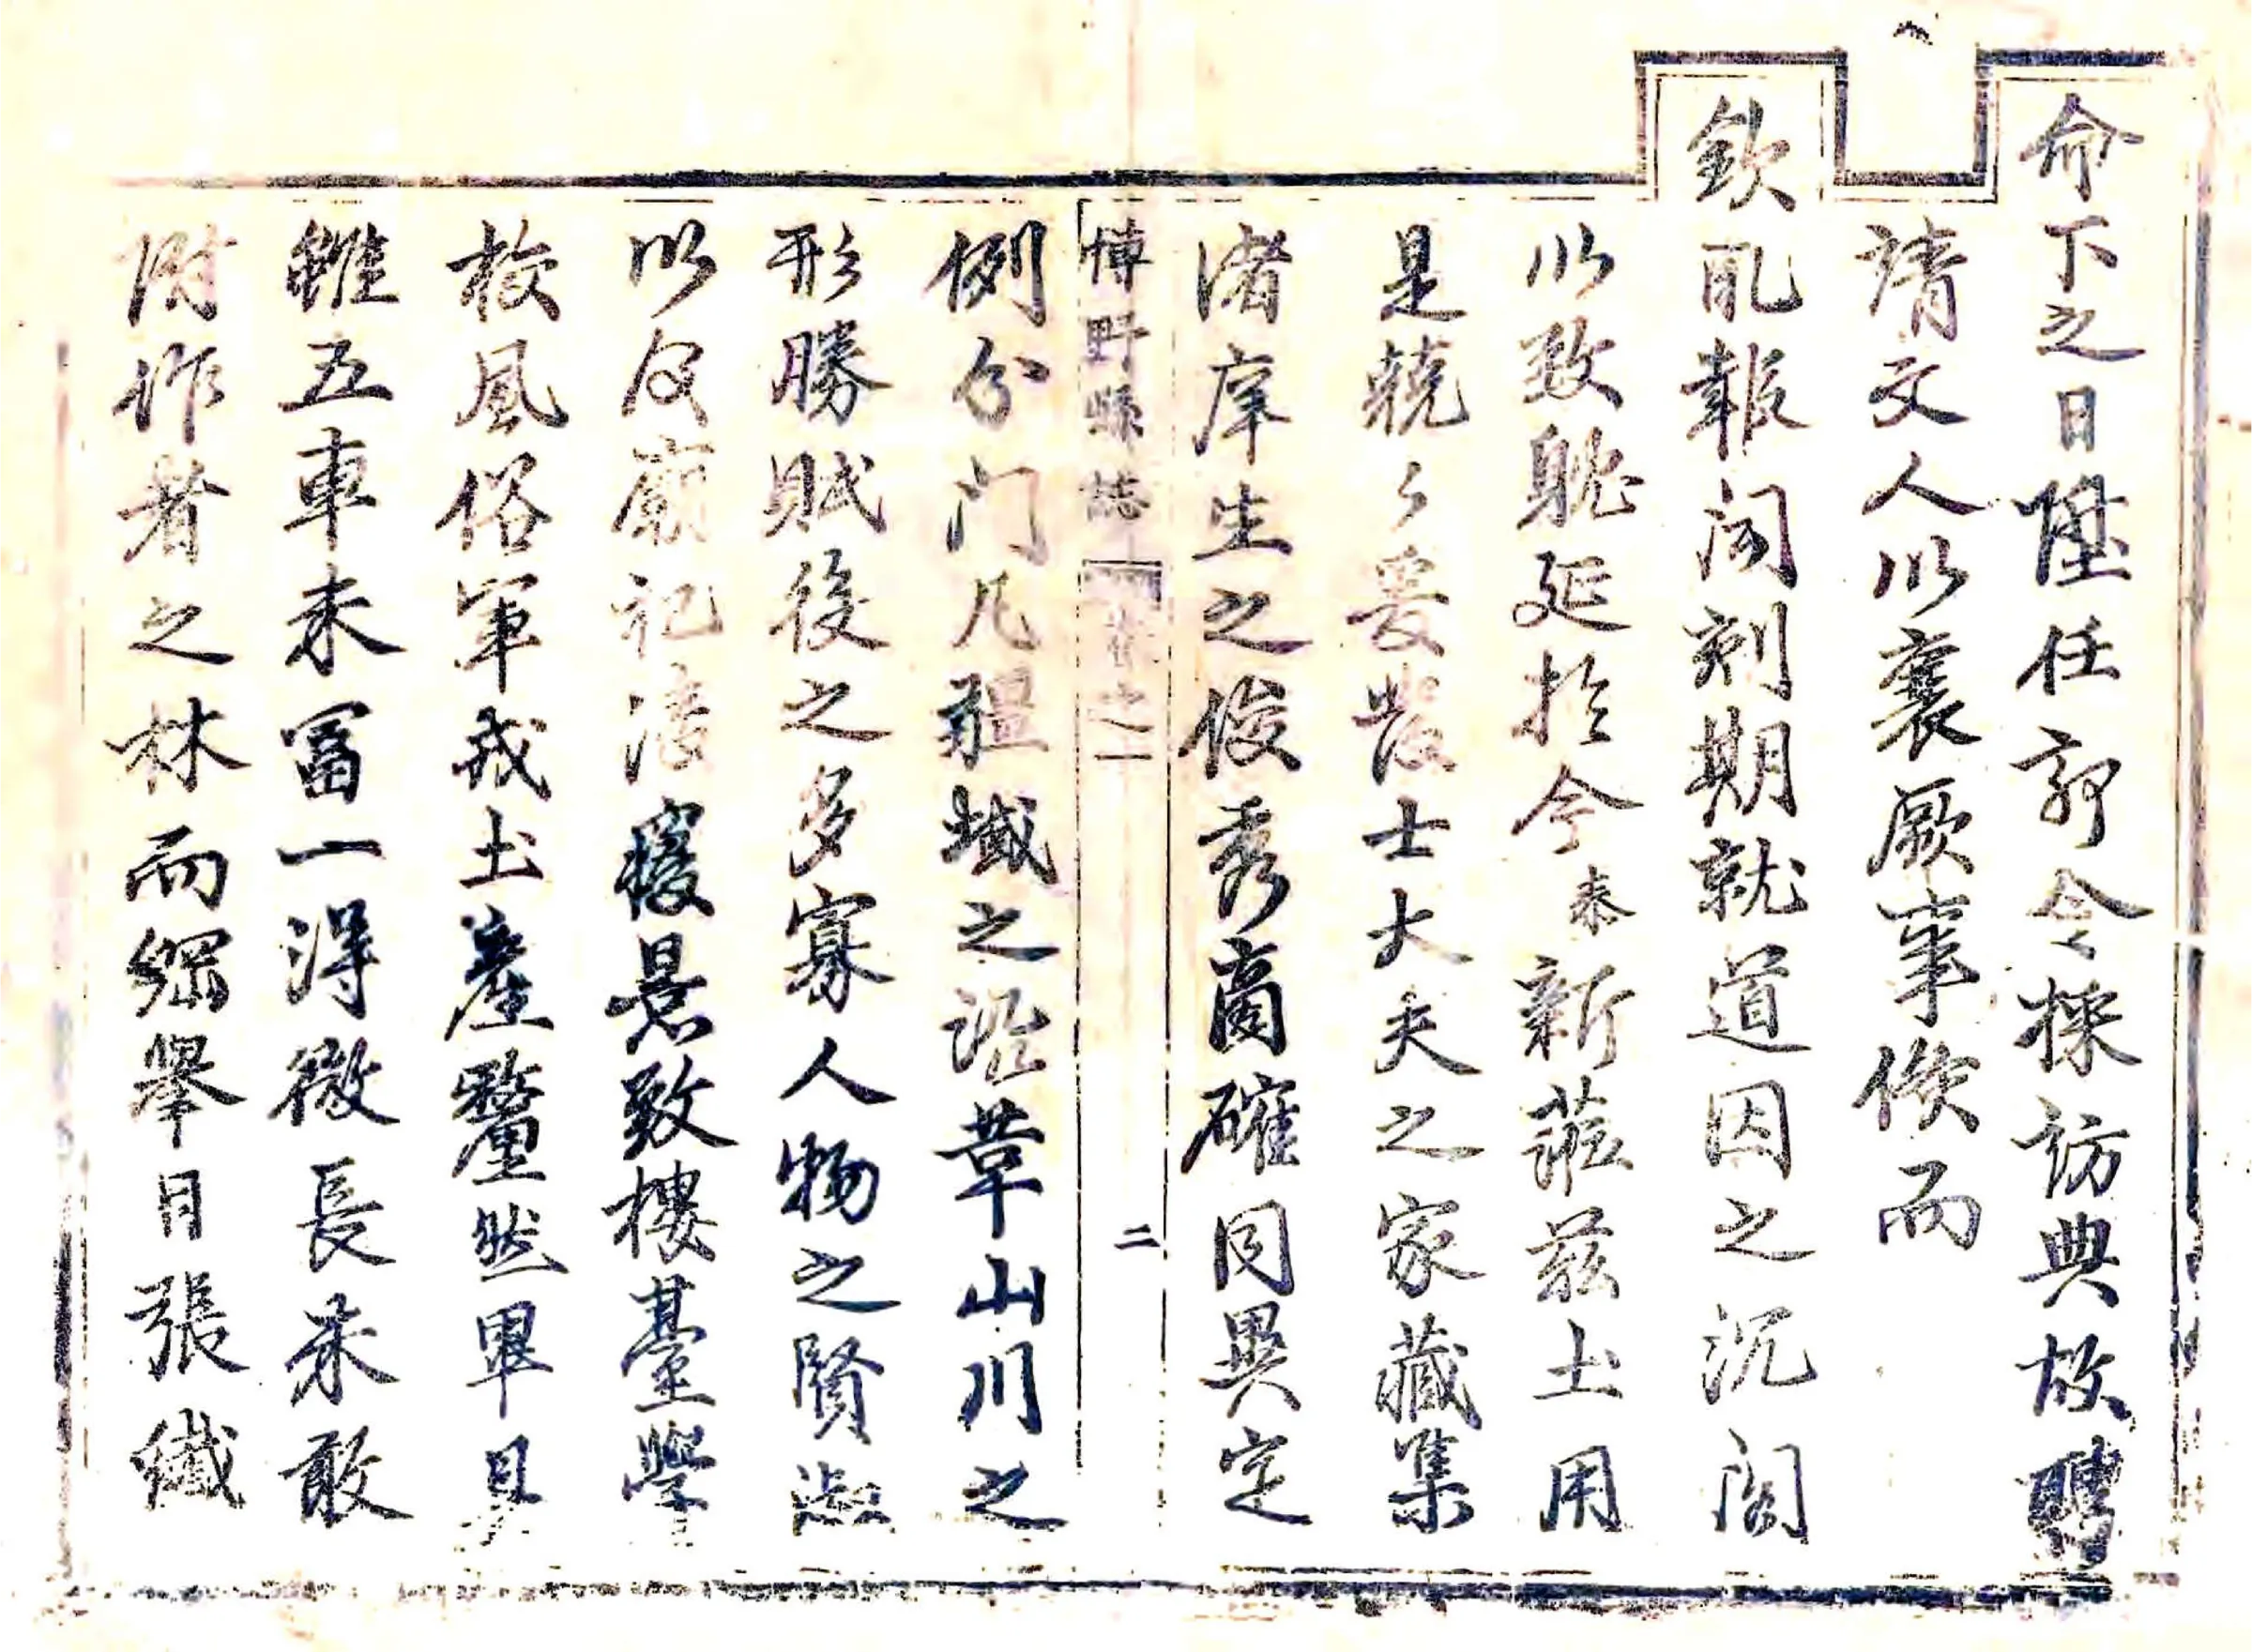 命下之日陞任郭令採訪典故聘
請文人以襄厥事候而
欽取報聞刻期就道因之沉閣
以致躭延於今泰新蒞茲土用
是兢〻爰發士大夫之家藏集
渚庠生之俊秀商確同異定
博野縣誌 卷之一 二
例分门凡疆域之沿革山川之
形勝賦役之多寡人物之賢淑
以及廟記淒景致樓臺學
校風俗軍戎土產釐然畢具
雖五車未富一得微長未敢
附作者之林而綱舉目張纖